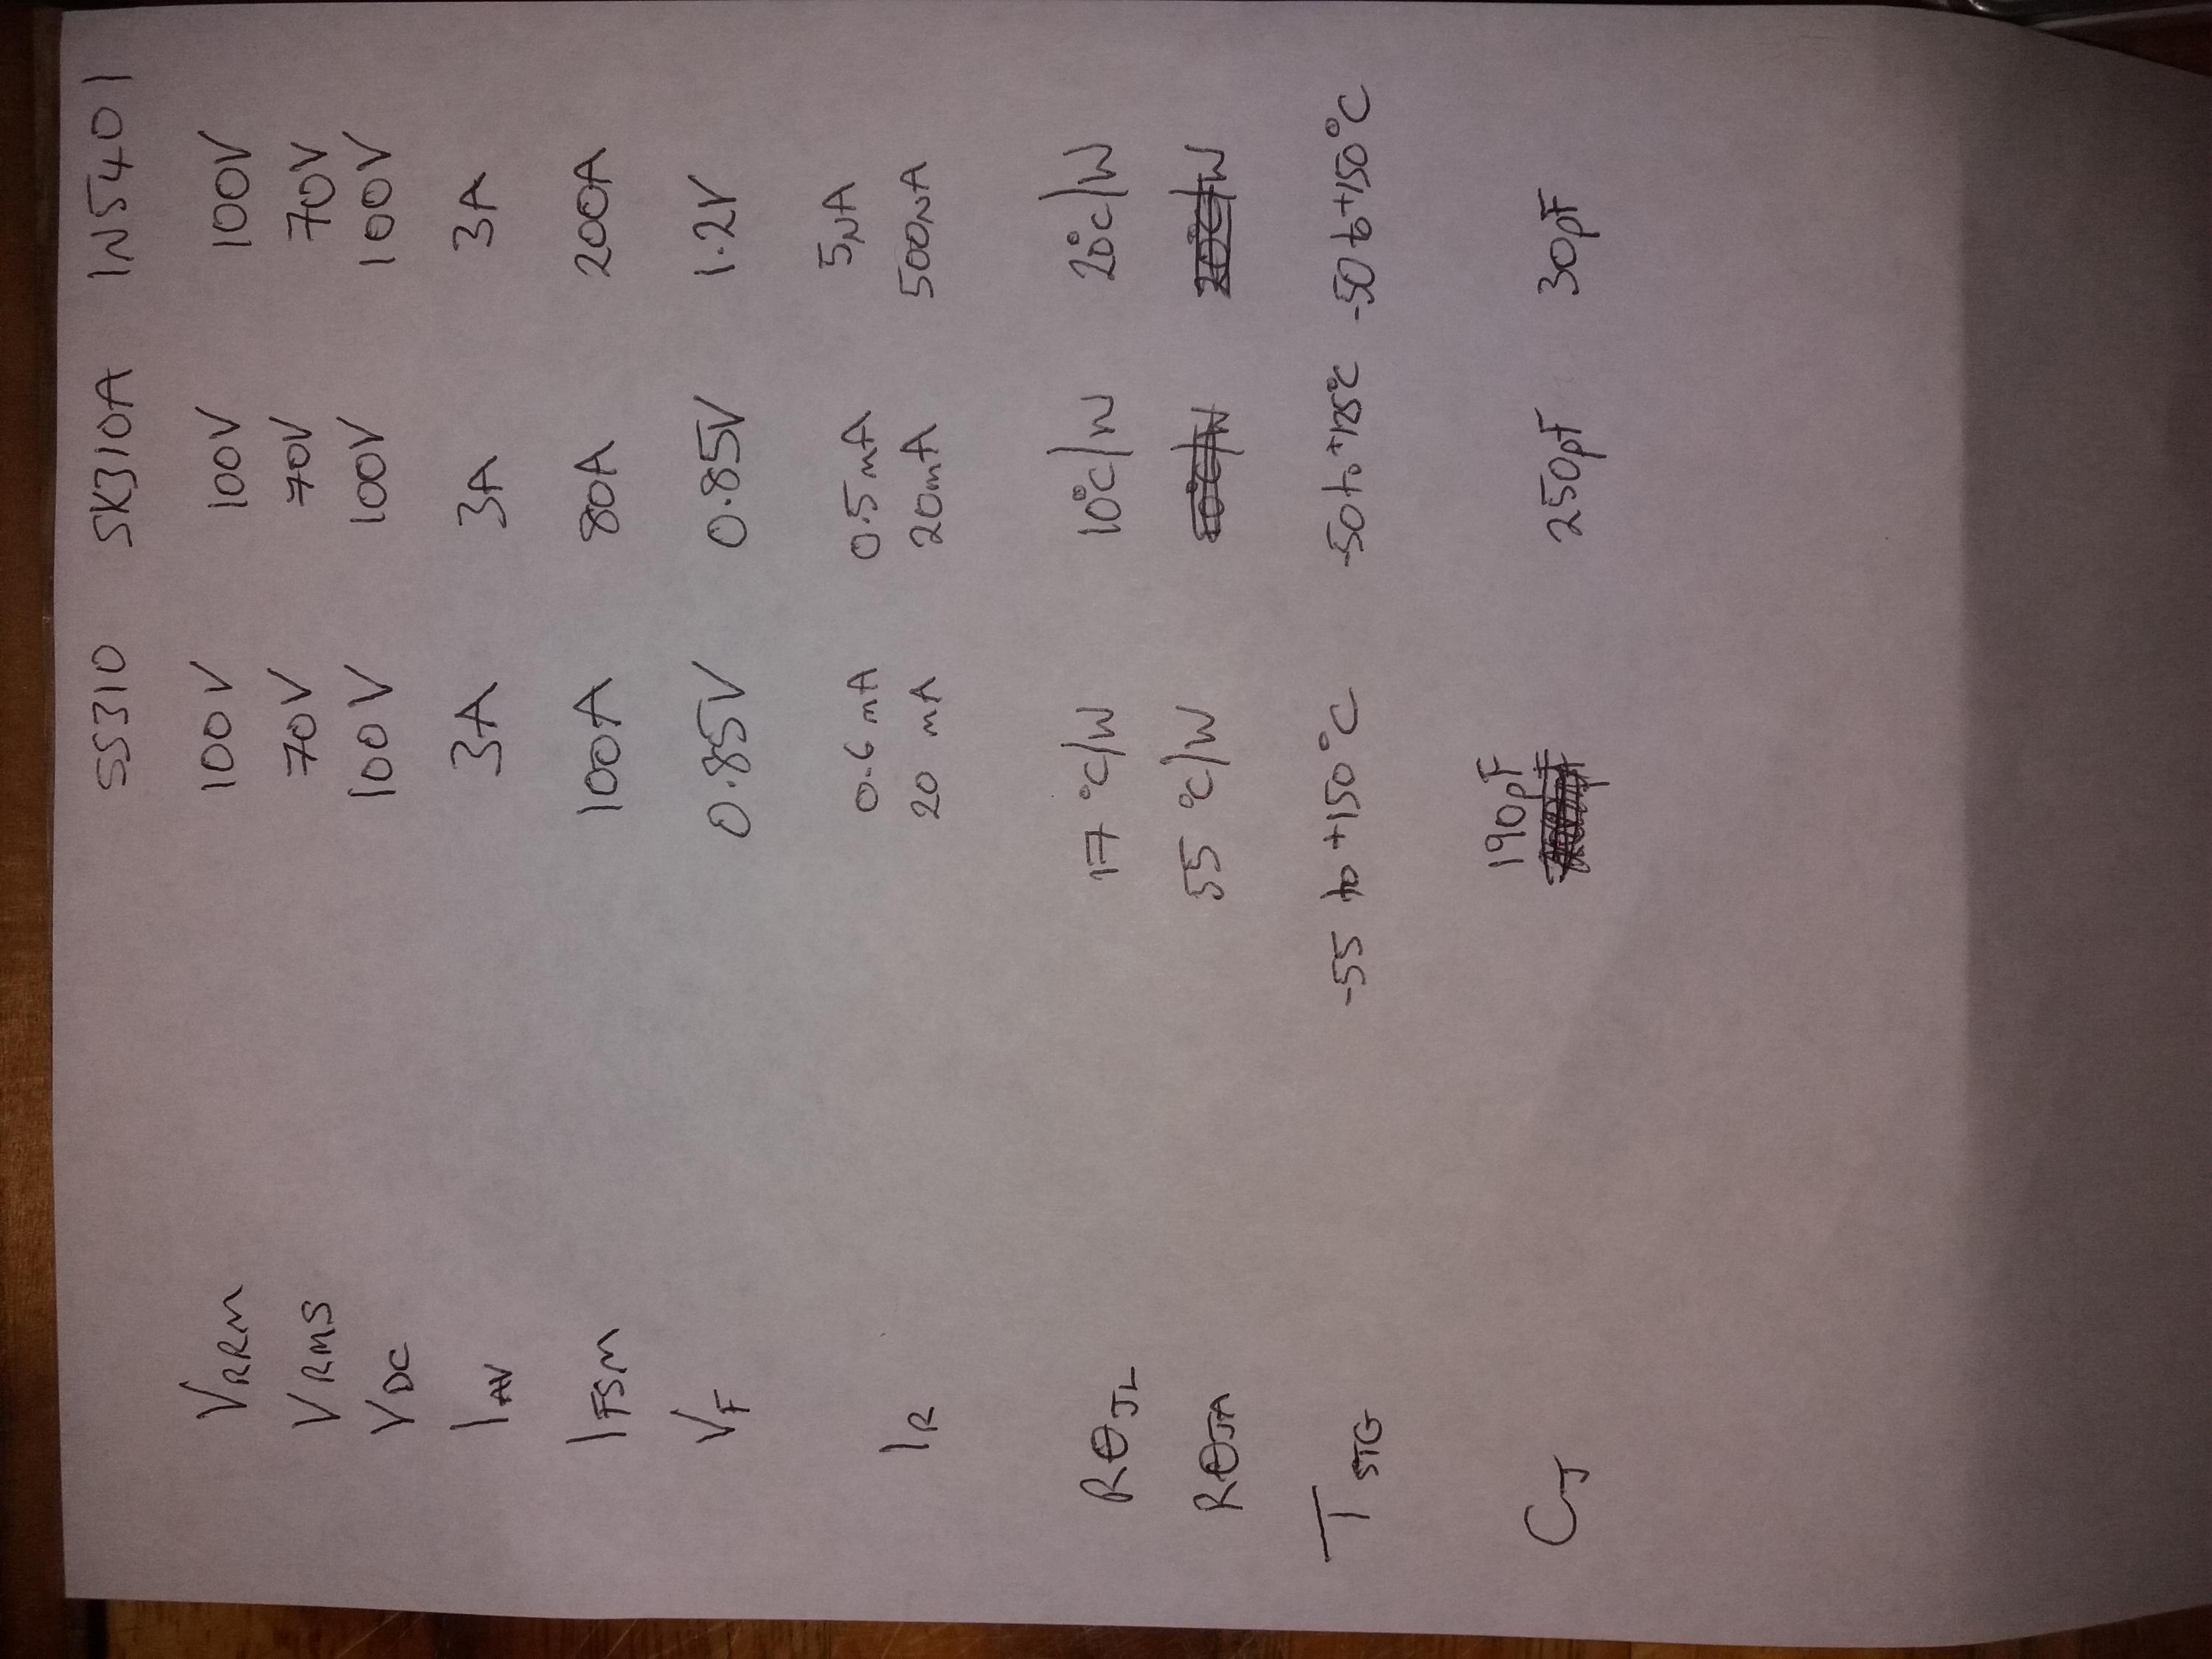 SS310 SK310A 1N5401
VRRM 100V 100V 100V
VRMS 70V 70V 70V
VDC 100V 100V 100V
IAV 3A 3A 3A
IFSM 100A 80A 200A
VF 0.85V 0.85V 1.2V
0.6mA 0.5mA 5NA
IR 20mA 20mA 500NA
RθJL 17°C/W 10°C/W 20°C/W
RθJA 55°C/W
TSTG -55 to +150°C -50 to +125°C -50 to +150°C
CJ 190pF 250pF 30pF